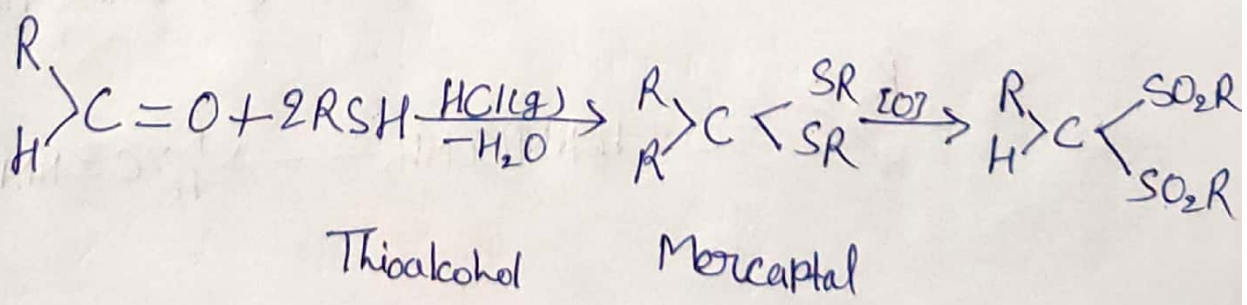 R
H >C=O + 2RSH HCl(g) / -H₂O → R R >C< SR SR [O] → R H >C< SO₂R SO₂R
Thioalcohol Mercaptal